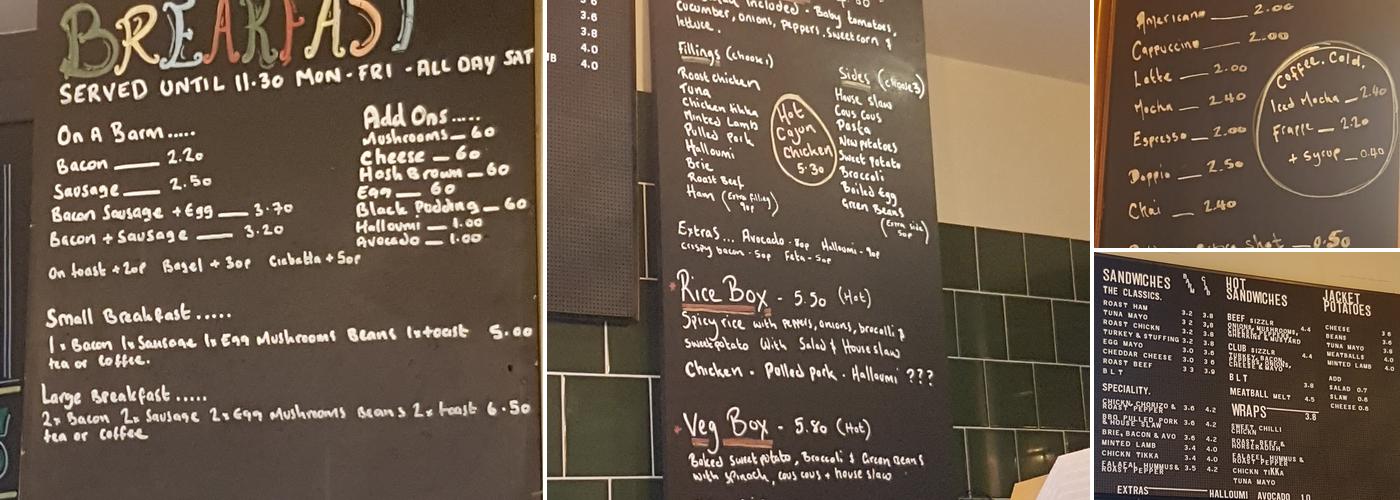 BREAKFAST
SERVED UNTIL 11.30 MON - FRI - ALL DAY SAT
On A Barm.....
Bacon — 2.20
Sausage — 2.50
Bacon Sausage + Egg — 3.70
Bacon + Sausage — 3.20
On toast + 20p Bagel + 30p Ciabatta + 50p
Add Ons.....
Mushrooms — 60
Cheese — 60
Hash Brown — 60
Egg — 60
Black Pudding — 60
Halloumi — 1.00
Avocado — 1.00
Small Breakfast.....
1x Bacon 1x Sausage 1x Egg Mushrooms Beans 1x toast 5.00
tea or coffee.
Large Breakfast.....
2x Bacon 2x Sausage 2x Egg Mushrooms Beans 2x toast 6.50
tea or coffee
3.6
3.8
4.0
4.0
included. Baby tomatoes,
cucumber, onions, peppers, sweetcorn &
lettuce.
Fillings (choose 1)
Roast chicken
Tuna
Chicken tikka
Minted Lamb
Pulled Pork
Halloumi
Brie
Roast Beef
Ham (Extra filling
90p)
Hot
Cajun
Chicken
5.30
Sides (choose 3)
House slaw
Cous Cous
Pasta
New potatoes
Sweet Potato
Broccoli
Boiled Egg
Green Beans
(Extra side
50p)
Extras... Avocado - 80p Halloumi - 90p
Crispy bacon - 50p Feta - 50p
* Rice Box - 5.50 (Hot)
Spicy rice with peppers, onions, brocolli &
sweetpotato with Salad & House slaw
Chicken - Pulled pork - Halloumi ???
* Veg Box - 5.80 (Hot)
Baked sweet potato, Broccoli & Green Beans
with spinach, cous cous + house slaw
Americano — 2.00
Cappuccino — 2.00
Latte — 2.00
Mocha — 2.40
Espresso — 2.00
Doppio — 2.50
Chai — 2.40
shot — 0.50
Coffee. Cold.
Iced Mocha — 2.40
Frappe — 2.20
+ Syrup — 0.40
SANDWICHES
THE CLASSICS.
ROAST HAM
TUNA MAYO 3.2 3.8
ROAST CHICKN 3.2 3.8
TURKEY & STUFFING 3.2 3.8
EGG MAYO 3.0 3.6
CHEDDAR CHEESE 3.0 3.6
ROAST BEEF 3.3 3.9
B L T
SPECIALITY.
CHICKN, CHORIZO &
ROAST PEPPER 3.6 4.2
BBQ PULLED PORK
& HOUSE SLAW 3.6 4.2
BRIE, BACON & AVO 3.6 4.2
MINTED LAMB 3.4 4.0
CHICKN TIKKA 3.4 4.0
FALAFAL, HUMMUS &
ROAST PEPPER 3.5 4.2
EXTRAS HALLOUMI AVOCADO 1.0
HOT
SANDWICHES
BEEF SIZZLR
ONIONS, MUSHROOMS, 4.4
GHERKINS & MUSTARD
CLUB SIZZLR
TURKEY, BACON, 4.4
CHEESE & MAYO
B L T 3.8
MEATBALL MELT 4.5
WRAPS — 3.8
SWEET CHILLI
CHICKN
ROAST BEEF &
HORSERADISH
FALAFAL, HUMMUS &
ROAST PEPPER
CHICKN TIKKA
TUNA MAYO
JACKET
POTATOES
CHEESE 3.6
BEANS 3.6
TUNA MAYO 3.8
MEATBALLS 4.0
MINTED LAMB 4.0
ADD
SALAD 0.7
SLAW 0.6
CHEESE 0.6